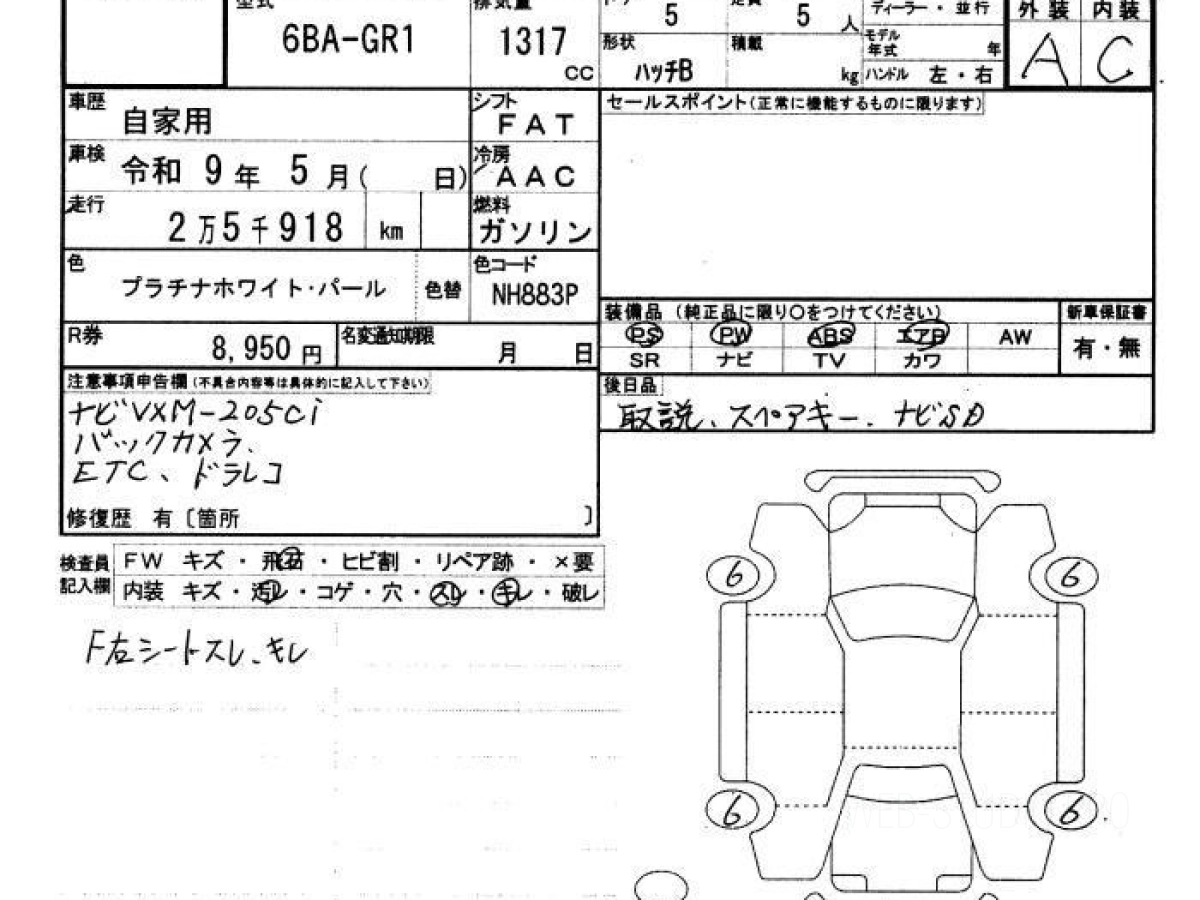 型式 6BA-GR1
排気量 1317 CC
5
定員 5 人
形状 ハッチB
積載 kg
ディーラー・並行
モデル年式 年
ハンドル 左・右
外装 内装
A C
車歴 自家用
シフト FAT
セールスポイント(正常に機能するものに限ります)
車検 令和 9年 5月( 日)
冷房 AAC
走行 2万5千918 km
燃料 ガソリン
色 プラチナホワイト・パール 色替
色コード NH883P
装備品 (純正品に限り〇をつけてください) 新車保証書
PS PW ABS エアB AW 有・無
SR ナビ TV カワ
R券 8,950円
名変通知期限 月 日
注意事項申告欄(不具合内容等は具体的に記入して下さい)
ナビVXM-205Ci
バックカメラ、
ETC、ドラレコ
修復歴 有〔箇所 〕
後日品
取説、スペアキー、ナビSD
検査員記入欄
FW キズ・飛石・ヒビ割・リペア跡・×要
内装 キズ・汚レ・コゲ・穴・スレ・キレ・破レ
F右シートスレ、キレ
6 6
6 6